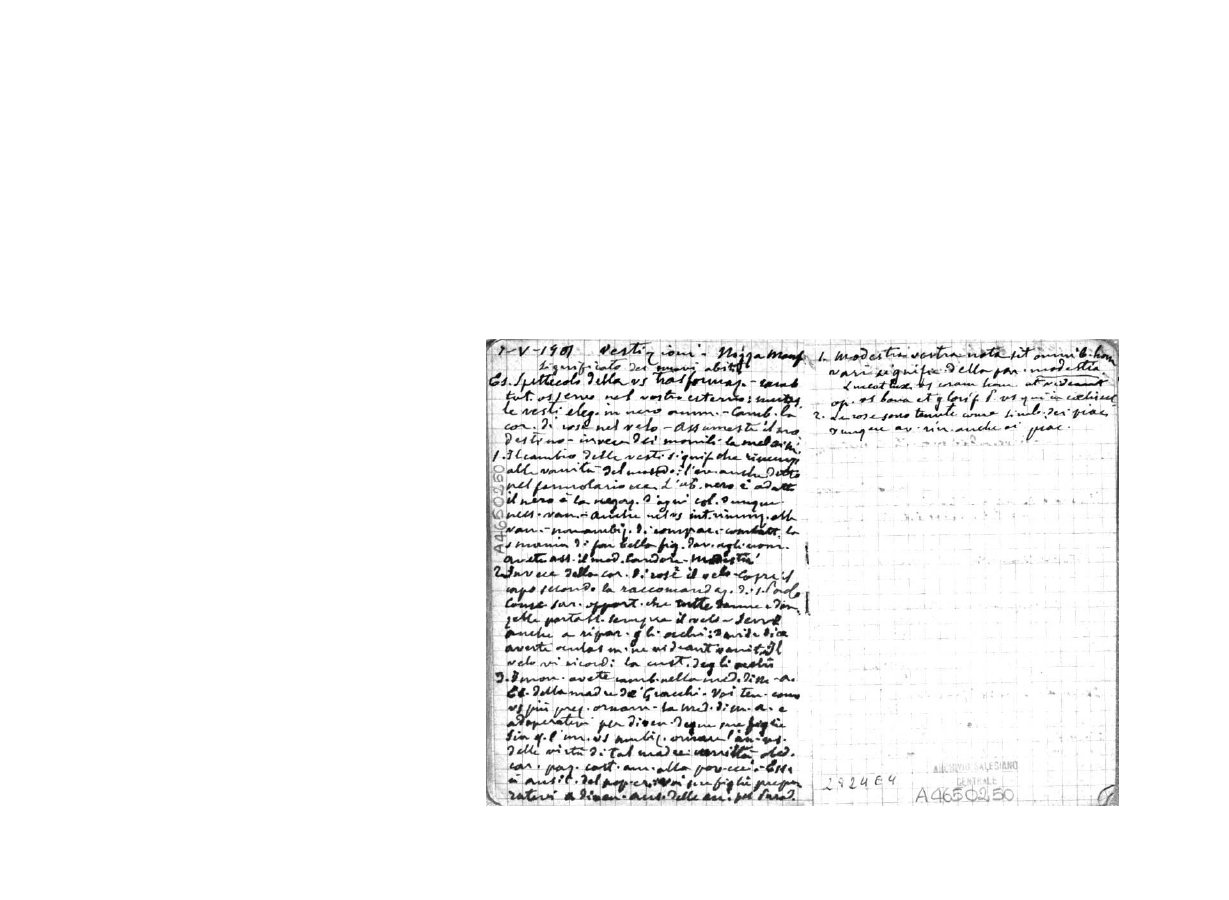 7-V-1901 Vestizioni - Nizza Monf
Significato dei nuovi abiti
Es. Spettacolo della vs trasformaz. - camb
tut. osservo nel vostro esterno: mutas.
le vesti eleg. in nero amm. - Camb. la
cor. di rose nel velo - Assumeste il
destino - invece dei monili la med
1. Il cambio delle vesti signif. che
alle vanità del mondo: l'ave anche detto
nel formolario L'ab. nero è adatt
il nero è la negaz. d'ogni col. dunque
ness. van. - anche nel vs int. alle
van. - non ambiz. di compiac. - combatt. la
smania di far bella fig. dav. agli uom.
avete ass. il - Modestia
2. Invece della cor. di rose il velo - Copre il
capo secondo la raccomandaz. di S. Paolo
come opport. che tutte donne e don
zelle portass. sempre il velo - Serve
anche a ripar. gli occhi: Davide dice
averte oculos m. ne videant vanit. Il
velo vi ricordi la cust. degli occhi
3. I mon. avete camb. nella med. di M. A.
Es. della madre de' Gracchi - Voi ten. come
vs più preg. ornam. la med. di M. A. e
adoperatevi per diven. degne sue figlie
Sia q. l'un. vs ambiz. ornare l'an. vs.
delle virtù di tal madre: umiltà obed.
car. paz. cast. am. alla pov. ecc. - Essa
è ausil. del pop. cr. voi sue figlie prepa
ratevi a diven. aus. delle an. pel Parad.
1. Modestia vestra nota sit omnib. hom
vari signific. della par. modestia
Luceat lux vs coram hom. ut videant
op. vs bona et glorif. P. vs qui in coelis est
2. Le rose sono tenute come simb. dei piac.
dunque av. rin. anche ai piac.
282 4 E 4
ARCHIVIO SALESIANO
CENTRALE
A4650250
A4650250